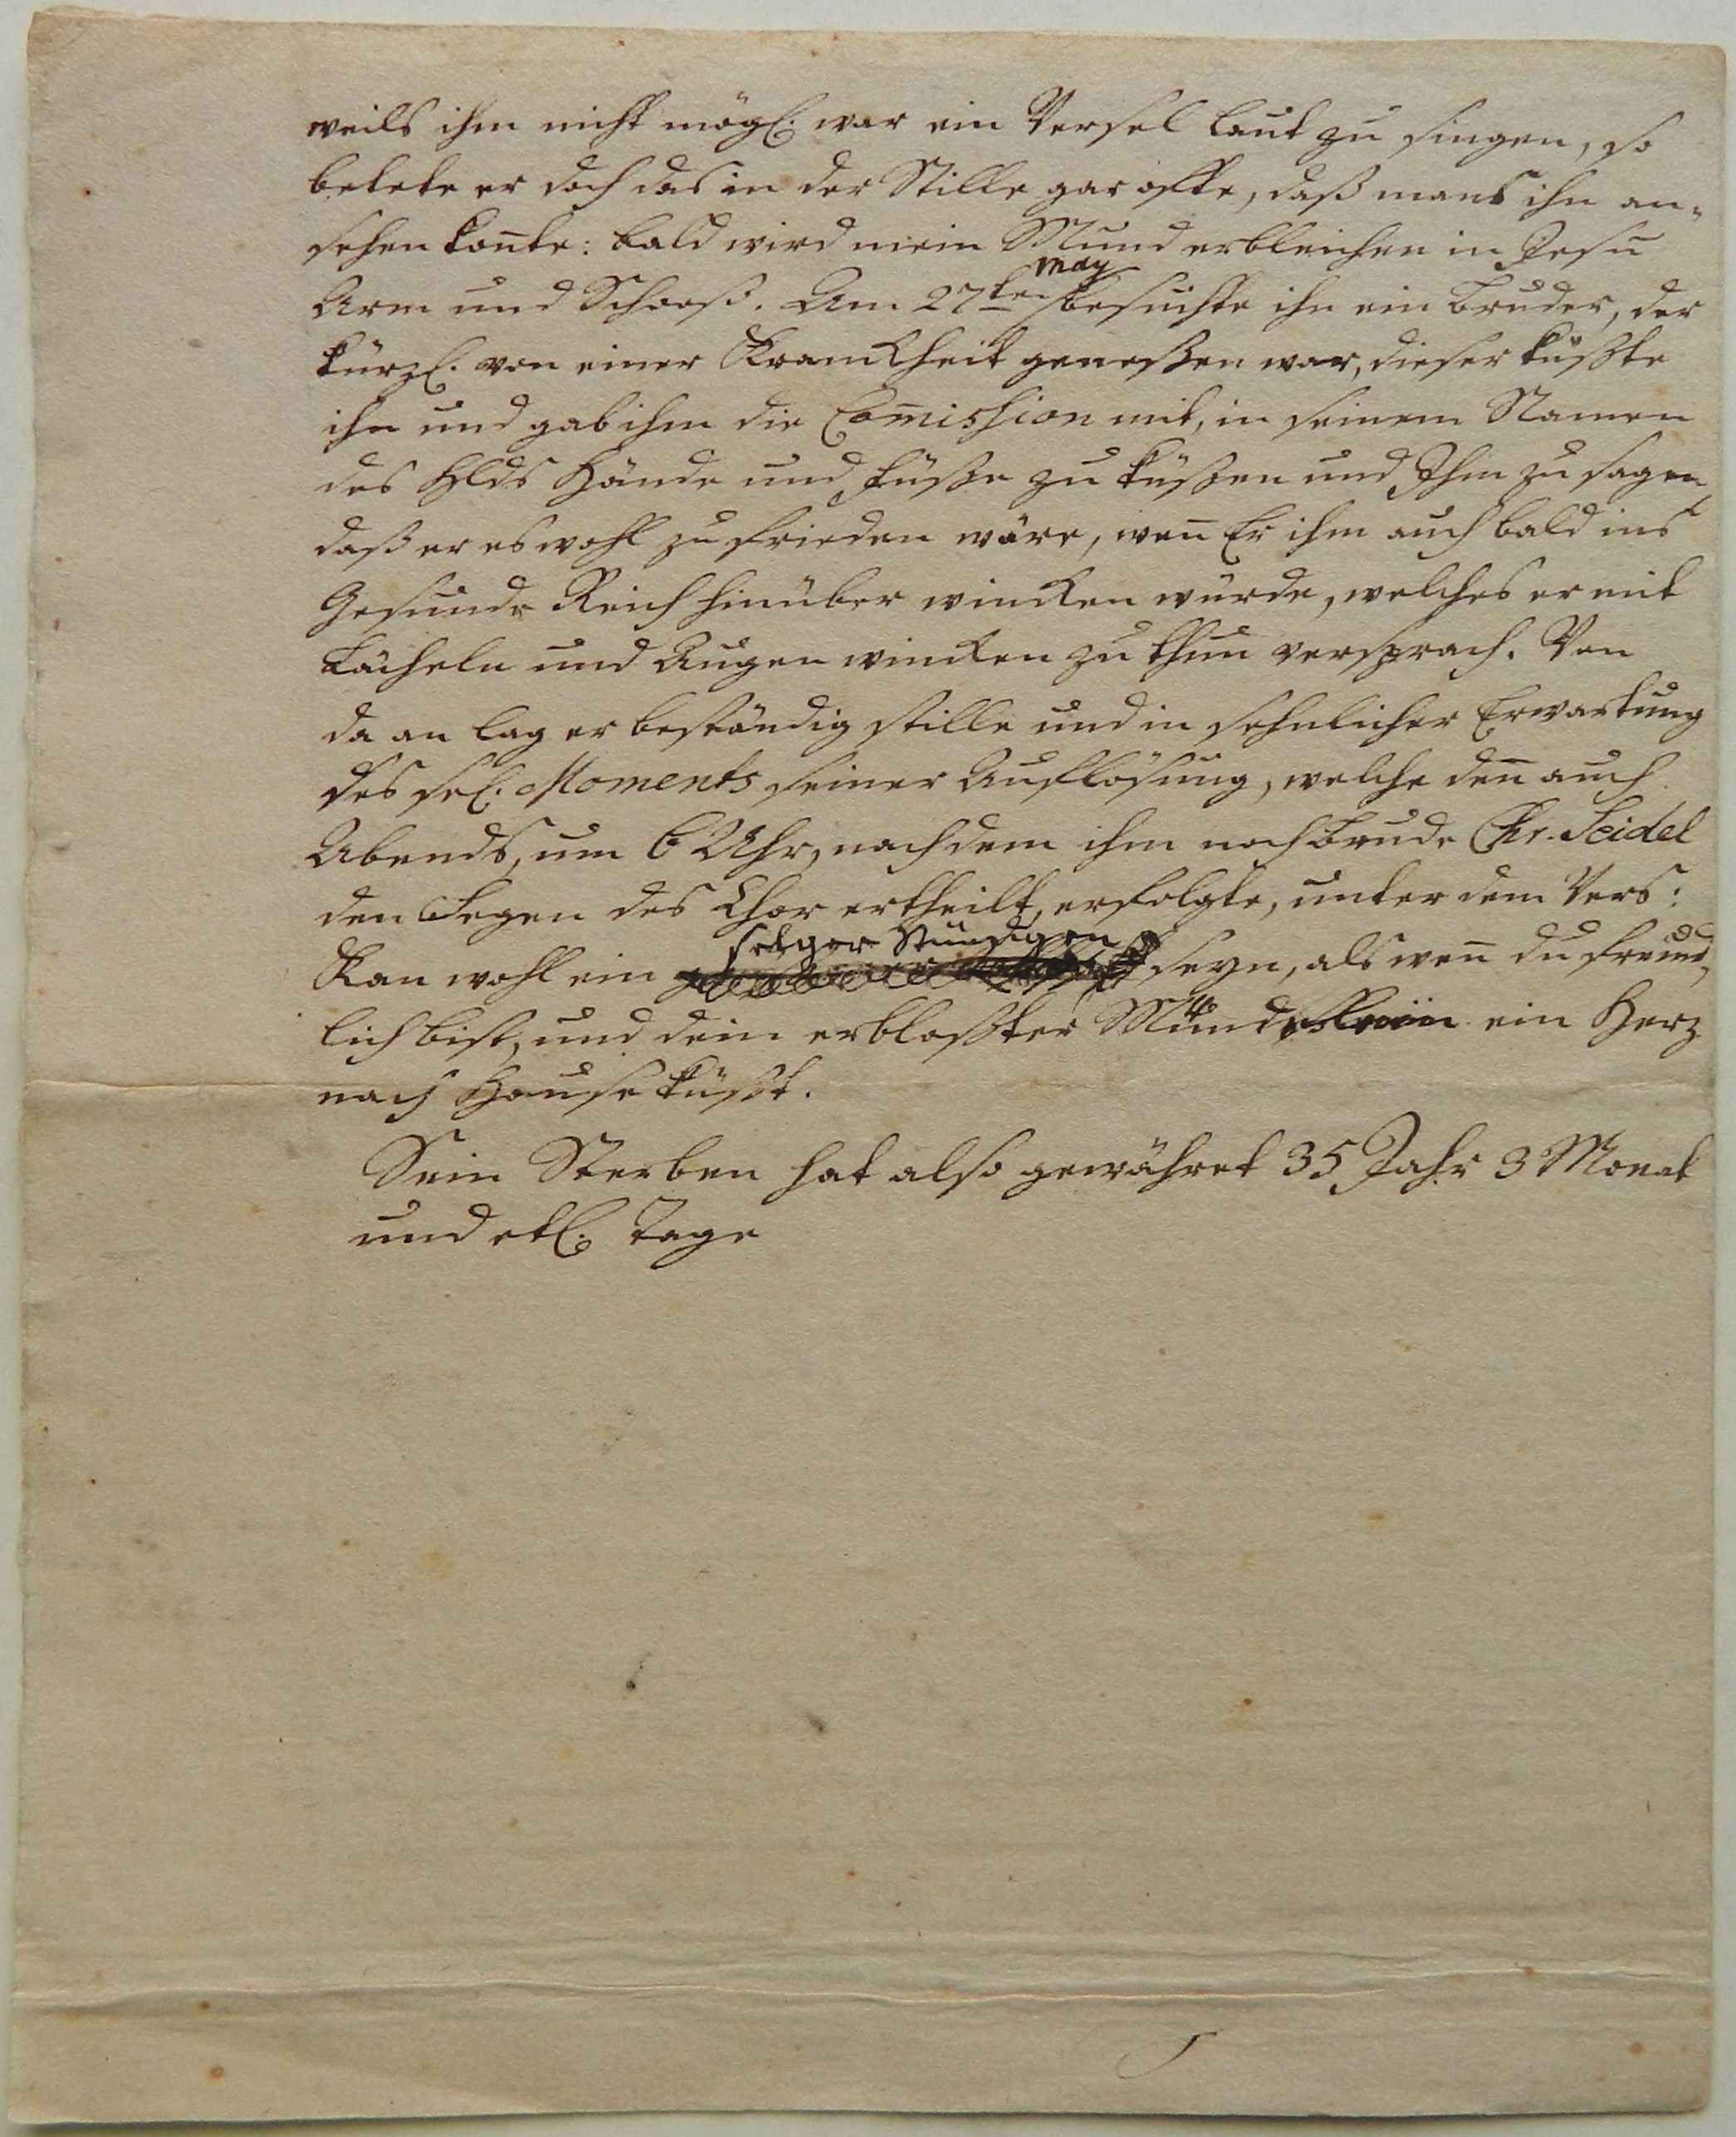 weils ihm nicht mögl. war ein Versel laut zu singen, so
betete er doch das in der Stille gar offte, daß mans ihn an-
sehen konte: bald wird mein Mund erbleichen in Jesu
may
Arm und Schooß. Am 27ten besuchte ihn ein Bruder, der
kürzl. von einer Kranckheit genesen war, dieser küßte
ihn und gab ihm die Com̅ission mit, in seinem Namen
des Hlds Hände und Füße zu küßen und Ihm zu sagen
daß er es wohl zufrieden wäre, wen̅ Er ihm auch bald ins
Gesunde Reich hinüber wincken würde, welches er mit
Lächeln und Augen wincken zu thun versprach. Von
da an lag er beständig stille und in sehnlicher Erwartung
des sel. Moments seiner Auflösung, welche den̅ auch
Abends, um 6 Uhr, nachdem ihm noch Brude Chr. Seidel
den Seegen des Chor ertheilt, erfolgte, unter dem Vers:
selger Stündgen
Kan wohl ein seyn, als wen̅ du freund-
lich bist, und dein erblaßter Mund ein Herz
nach Hause küßt.
Sein Sterben hat also gewähret 35 Jahr 3 Monat
und etl. Tage